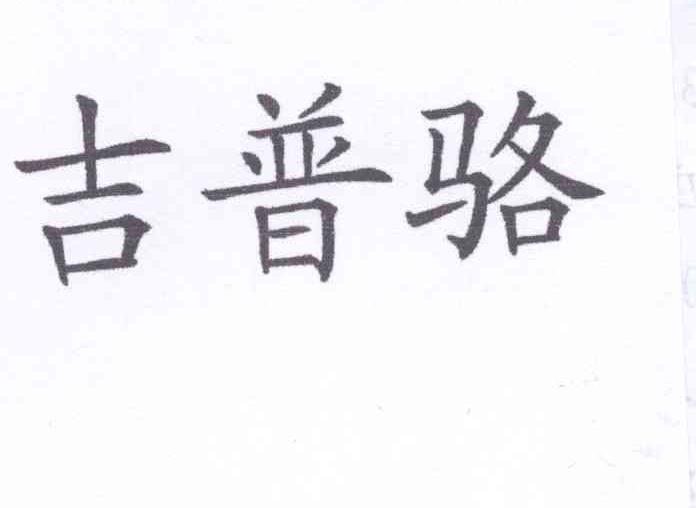 吉普骆